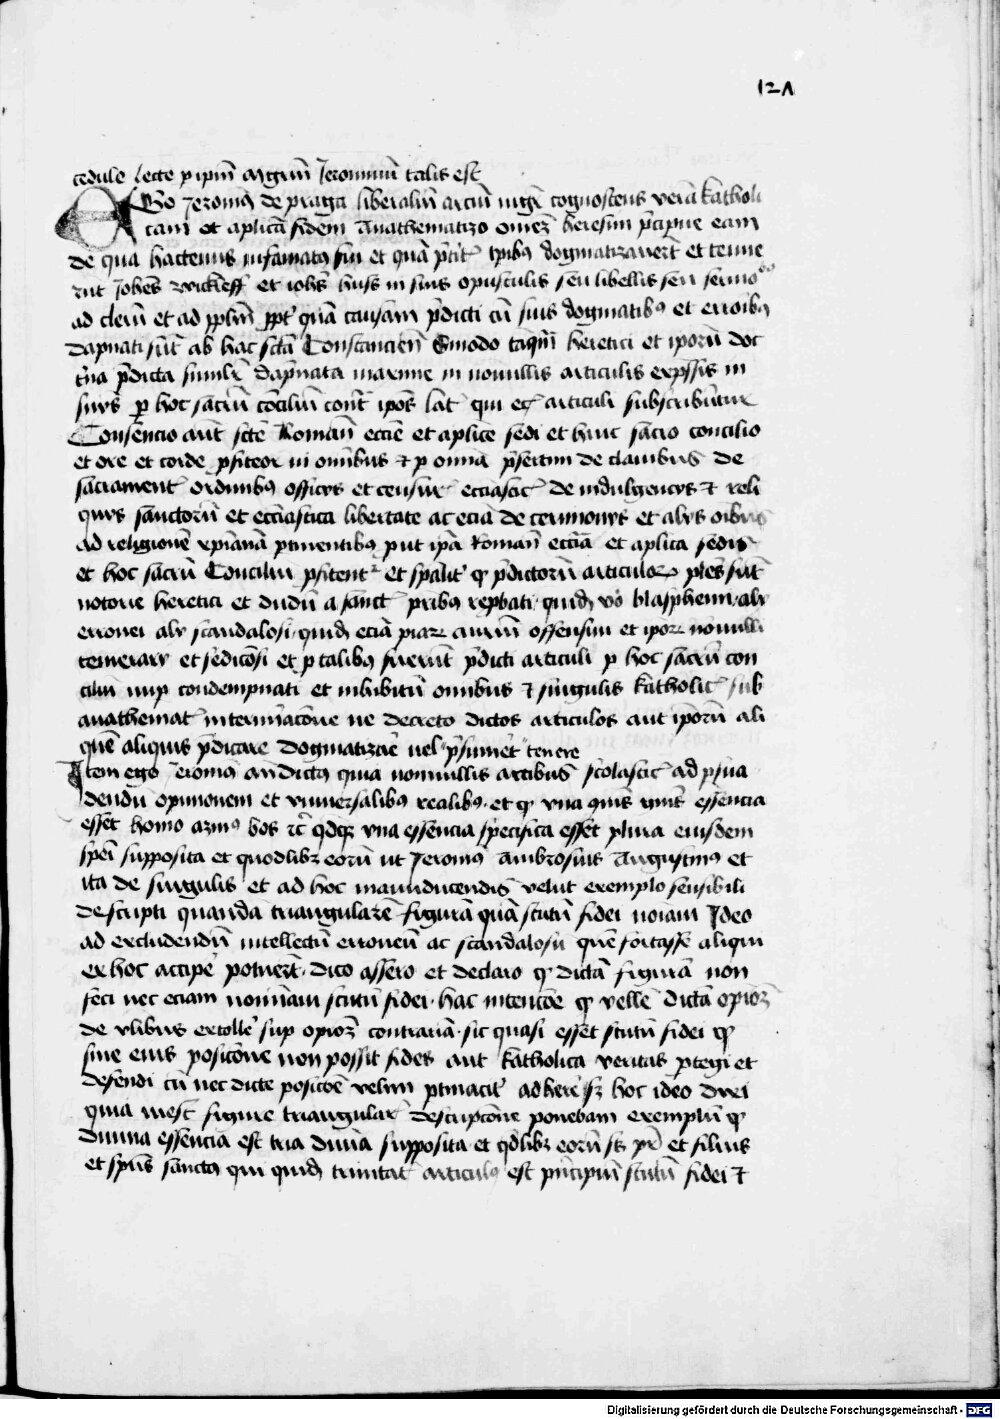 121
cedule lecte p ipm̄ mgrm̄ Jeronimū talis est
EGo Jeronim9 de praga liberaliū arciū mgr̄ cognoscens verā katholi
cam et aplicā fidem Anathematizo omēz heresim p̄cipue eam
de qua hactenus infamat9 sui et quā p̄tit' tpib9 dogmatizaverūt et tenue
rūt Johēs wickleff et iohēs huss in suis opusculis seu libellis seu sermo
ad clerū et ad pplm̄ ppt' quā causam p̄dicti cū suis dogmatib9 et erroib9
dapnati sūt ab hac scta Constancien̄ Sinodo taq̄m heretici et ipoꝝ doc
t'na p̄dicta simil'r dapnata maxime in nonullis articulis exp̄ssis in
sn̄ijs p hoc sacrū cōciliū cont' ipos lat' qui et articuli subscribūtur
Consencio aut scē Roman̄ eccie et aplice sedi et huic sacro concilio
et ore et corde p̄fiteor in omibus et p omia p̄sertim de clauibus de
sacrament' ordinib9 officijs et censur' ecciastic' de indulgencijs et reli
quijs sanctorū et ecciastica libertate ac eciā de cerimonijs et alijs oibus
ad religionē xpianā ptinentib9 put ipa Roman̄ eccia et aplica sedis
et hoc sacrū Conciliū p̄fitent' et sp̄alit' q̄ p̄dictorū articuloꝝ ples sūt
notorie heretici et dudū a sanct' prib9 rep̄bati quidā vo blasphemi alij
erronei alij scandalosi quidā eciā piaꝝ auriū offensiui et ipoꝝ nonulli
temerarij et sediciosi et p talib9 fuerūt p̄dicti articuli p hoc sacrū con
ciliū nup condempnati et inhibitū omibus et singulis katholic' sub
anathemat' interminacōne ne decreto dictos articulos aut ipoꝝ ali
quē aliquis p̄dicare dogmatizare uel p̄sumet tenere
Item ego Jeronim9 an̄dict9 quia nonnullis artibus scolastic' ad psua
dendū opinionem et vniuersalib9 realib9 et q̄ vna quis' uni' essencia
esset homo azin9 bos etc' qdqz vna essencia specifica esset plura eiusdem
spei supposita et quodlibz eorū ut Jeronim9 Ambrosius Augustinus et
ita de singulis et ad hoc manuducendis velut exemplo sensibili
descripti quandā triangularē figurā quā scutū fidei noiaui Ideo
ad excludendū intellectū erroneū ac scandalosū quē fortasse aliqui
ex hoc accipe potuerūt dico assero et declaro q̄ dictā figurā non
feci nec eciam nominaui scutū fidei hac intencōe q̄ vellē dictā opioēz
de vlibus extolle' sup opioēz contrariā sic quasi esset scutū fidei q̄
sine eius posicōne non possit fides aut katholica veritas p̄tegi et
defendi cū nec dicte posicōē velim ptinacit' adhere' sz hoc ideo dixi
quia inest figure triangular' descripcōne ponebam exemplū q̄
diuina essencia est tria diuīa supposita et qdlibz eorū sc' pr̄ et filius
et spūs sanct9 qui quidē trinitat' articulus est principiū scutū fidei et
Digitalisierung gefördert durch die Deutsche Forschungsgemeinschaft - DFG